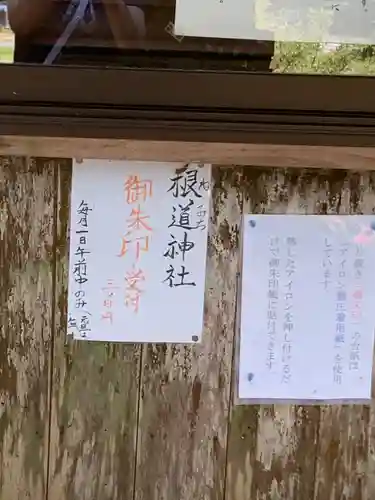 の台紙は
「アイロン圧着用紙」を使用
しています。
熱したアイロンを押し付けるだ
けで御朱印紙に貼付できます。
ね みち
根道神社
御朱印受付
三〇〇円
毎月1日午前中のみ